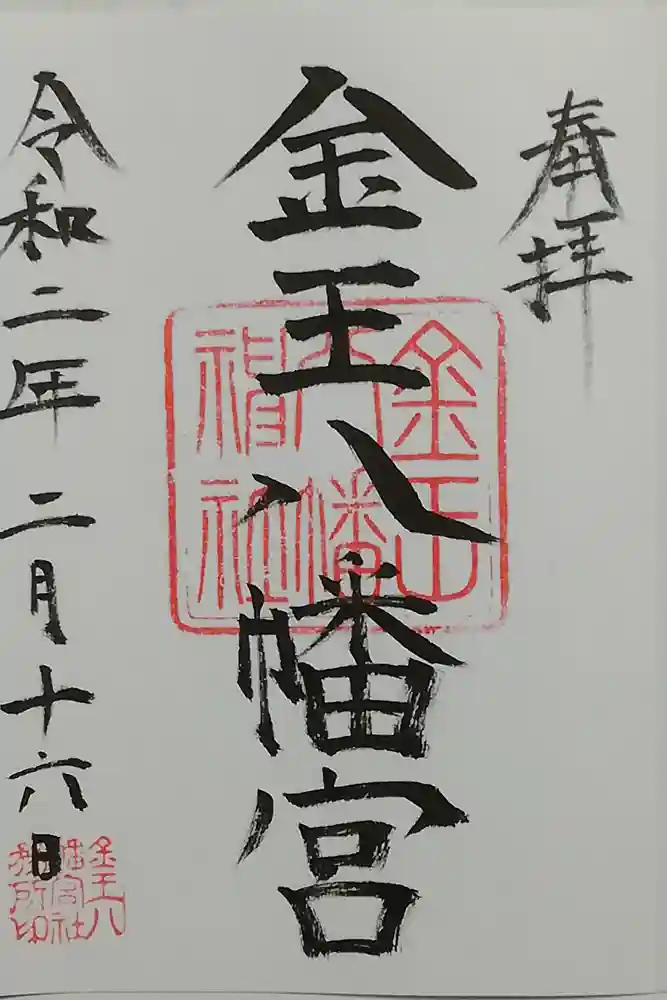 奉拝
金王八幡宮
金王
八幡
神社
令和二年二月十六日
金王八
幡宮社
務所印